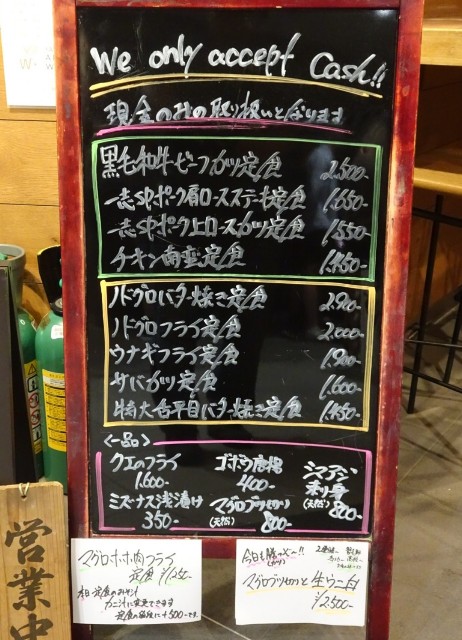 We only accept Cash!!
現金のみの取り扱いとなります
黒毛和牛ビーフカツ定食 2.500-
一志SPポーク肩ロースステーキ定食 1.650-
一志SPポーク上ロースカツ定食 1.550-
チキン南蛮定食 1.450-
ノドグロバター焼き定食 2.900-
ノドグロフライ定食 2.000-
ウナギフライ定食 1.900-
サバカツ定食 1.600-
特大舌平目バター焼き定食 1.450-
<一品>
クエのフライ 1.600-
ゴボウ唐揚 400-
シマアジ刺身 (天然) 800-
ミズナス浅漬け 350-
マグロブツ切り (天然) 800-
マグロホホ肉フライ
定食 ¥1,250-
本日定食のみそ汁
カニ汁に変更できます
定食の価格に+500-です。
今日も勝つぞ〜!!
マグロブツ切りと生ウニ
¥2.500-
営業中